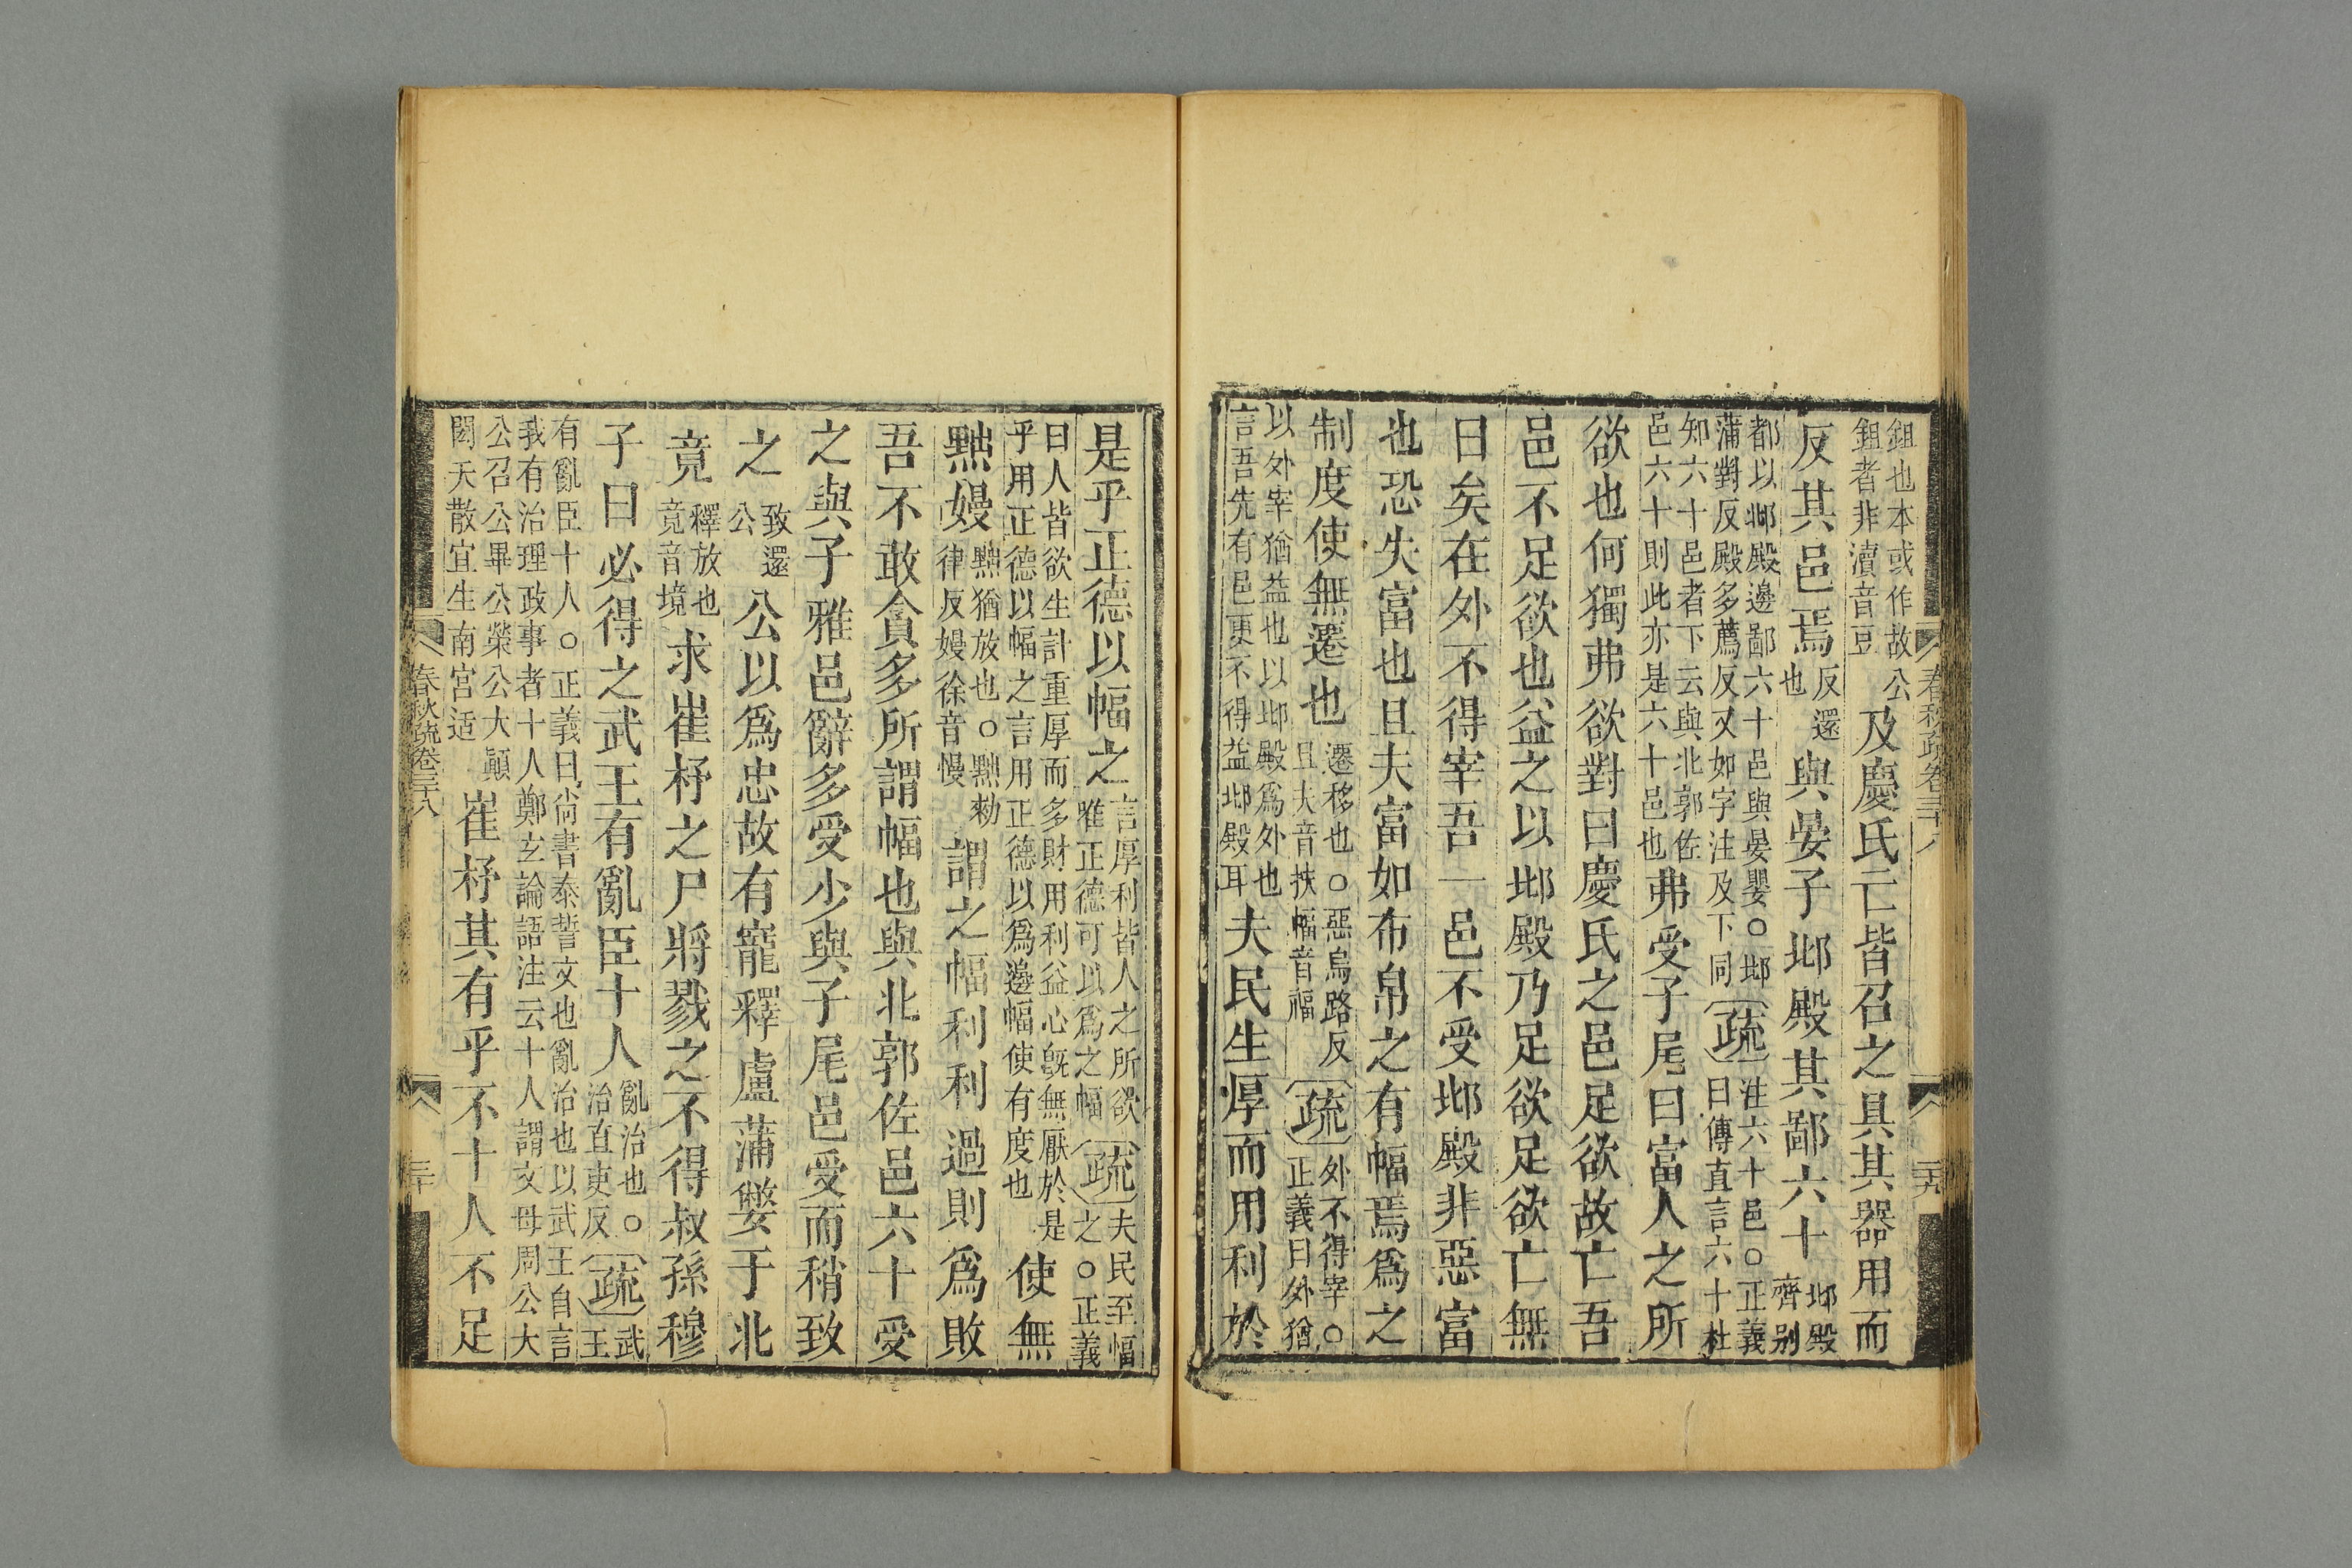 春秋疏卷三十八
二十九
鉏也本或作故公
鉏者非瀆音豆
及慶氏亡皆召之具其器用而
反其邑焉
反還
也
與晏子邶殿其鄙六十
邶殿
齊別
都以邶殿邊鄙六十邑與晏嬰○邶
蒲對反殿多薦反又如字注及下同
疏
注六十邑○正義
曰傳直言六十杜
知六十邑者下云與北郭佐
邑六十則此亦是六十邑也
弗受子尾曰富人之所
欲也何獨弗欲對曰慶氏之邑足欲故亡吾
邑不足欲也益之以邶殿乃足欲足欲亡無
日矣在外不得宰吾一邑不受邶殿非惡富
也恐失富也且夫富如布帛之有幅焉爲之
制度使無遷也
遷移也○惡烏路反
且夫音扶幅音福
疏
外不得宰○
正義曰外猶
以外宰猶益也以邶殿爲外也
言吾先有邑更不得益邶殿耳
夫民生厚而用利於
是乎正德以幅之
言厚利皆人之所欲
唯正德可以爲之幅
疏
夫民至幅
之○正義
曰人皆欲生計重厚而多財用利益心旣無厭於是
乎用正德以幅之言用正德以爲邊幅使有度也
使無
黜嫚
黜猶放也○黜勑
律反嫚徐音慢
謂之幅利利過則爲敗
吾不敢貪多所謂幅也與北郭佐邑六十受
之與子雅邑辭多受少與子尾邑受而稍致
之
致還
公
公以爲忠故有寵釋盧蒲嫳于北
竟
釋放也
竟音境
求崔杼之尸將戮之不得叔孫穆
子曰必得之武王有亂臣十人
亂治也○
治直吏反
疏
武
王
有亂臣十人○正義曰尙書泰誓文也亂治也以武王自言
我有治理政事者十人鄭玄論語注云十人謂文母周公大
公召公畢公榮公大顚
閎夭散宜生南宮适
崔杼其有乎不十人不足
春秋疏卷三十八
三十